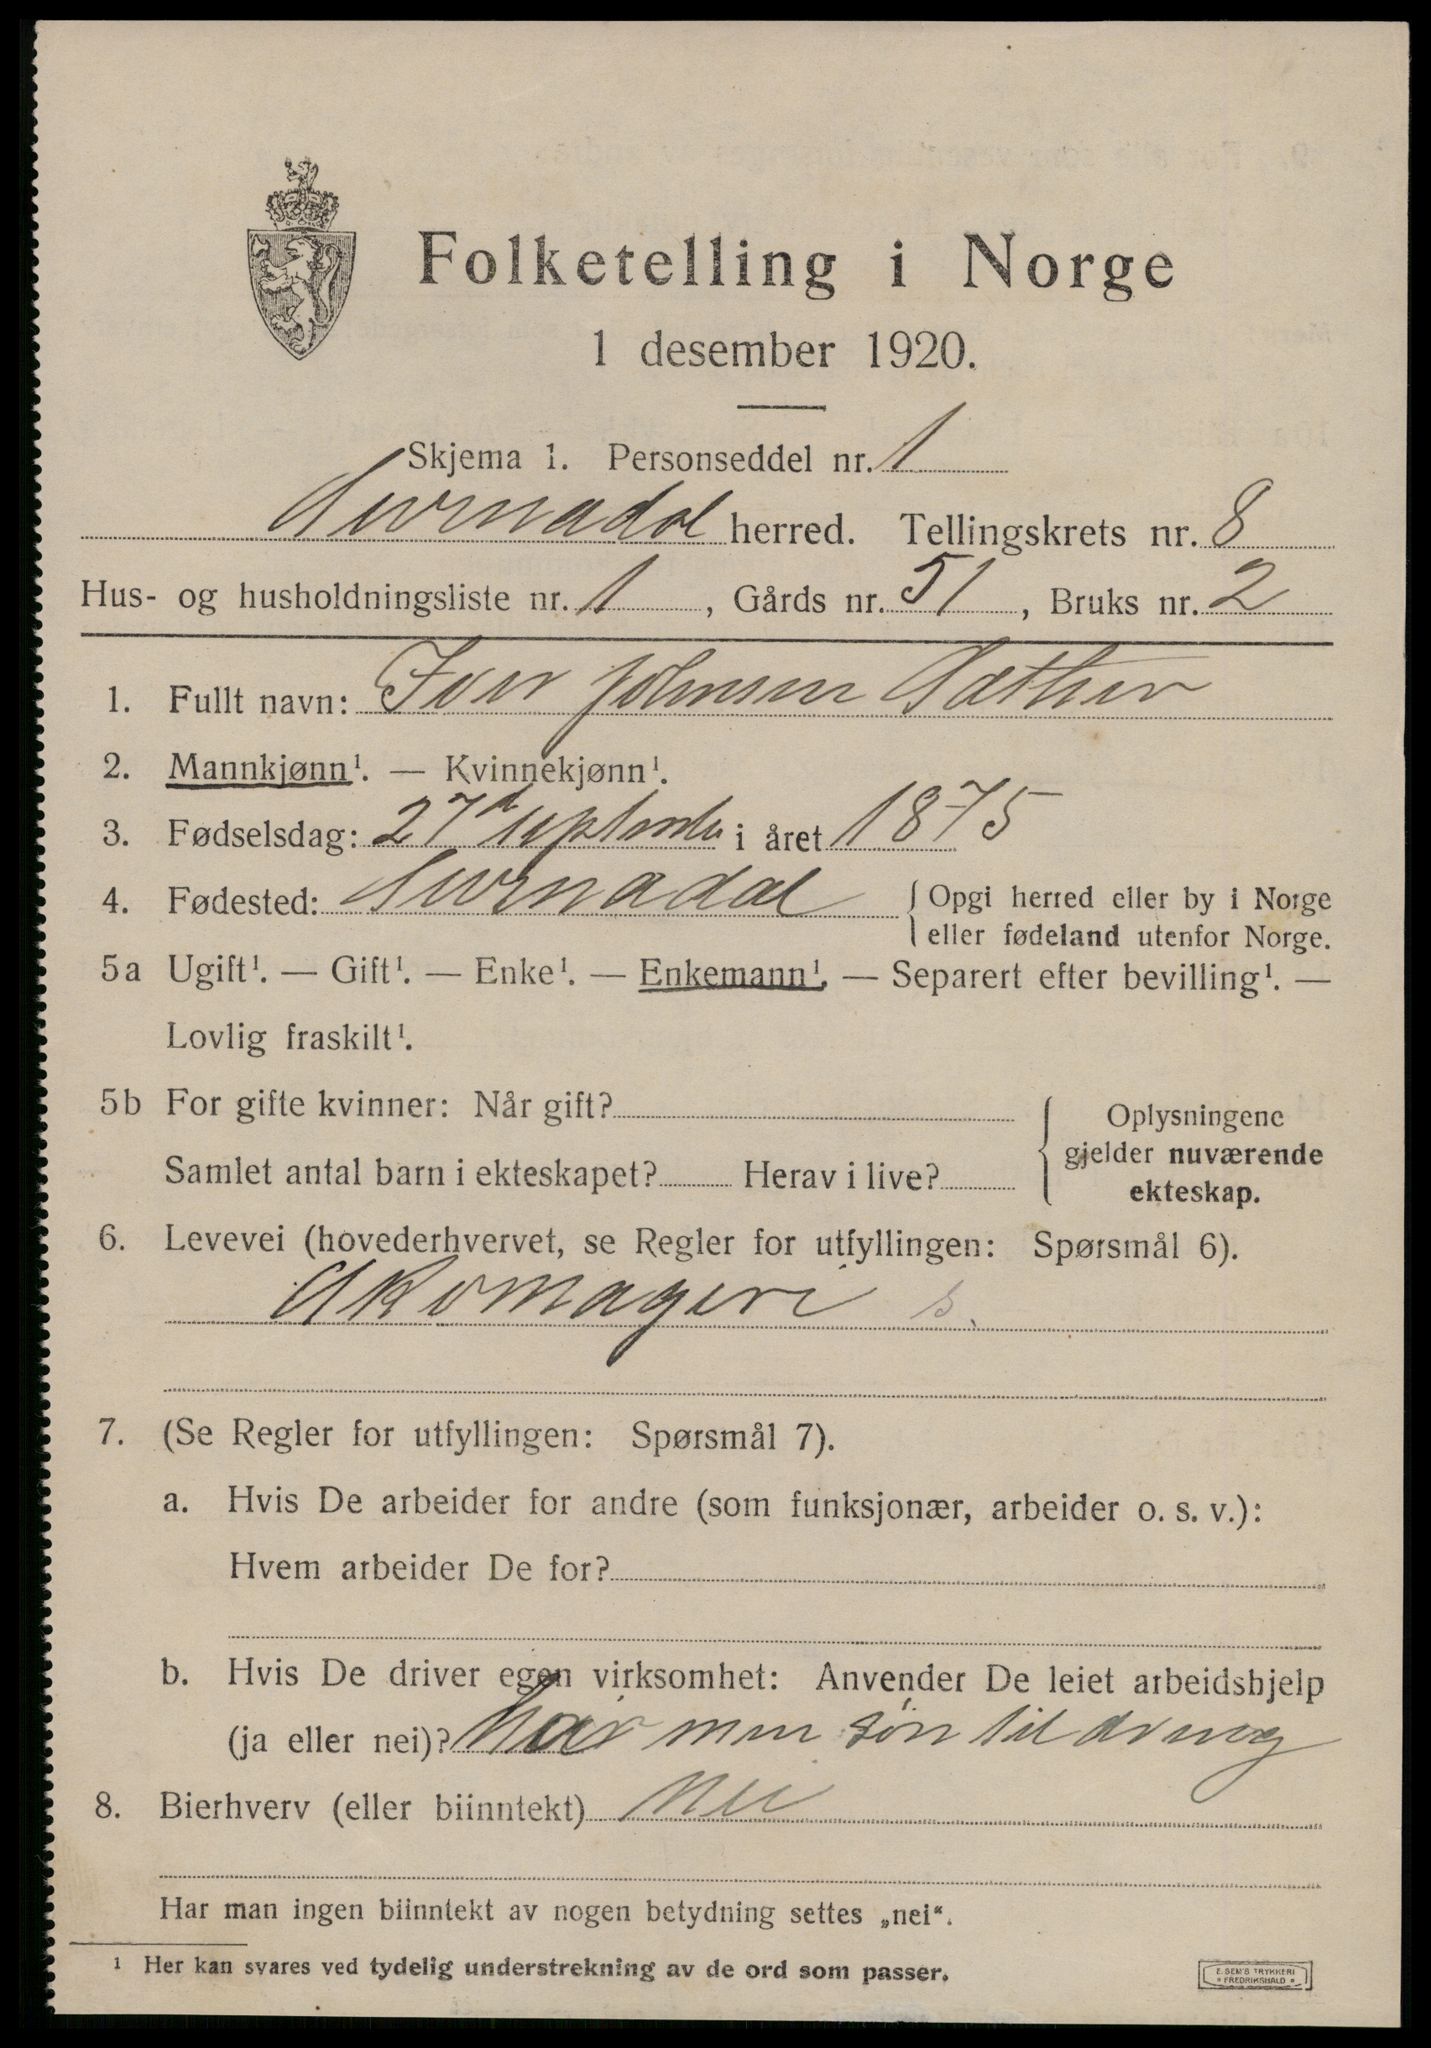 Folketelling i Norge
1 desember 1920.
Skjema 1. Personseddel nr. 1
Surnadal herred. Tellingskrets nr. 8
Hus- og husholdningsliste nr. 1, Gårds nr. 51, Bruks nr. 2
1. Fullt navn: Iver Johnsen Sæther
2. Mannkjønn¹. — Kvinnekjønn¹.
3. Fødselsdag: 27d september i året 1875
4. Fødested: Surnadal { Opgi herred eller by i Norge
eller fødeland utenfor Norge.
5a Ugift¹. — Gift¹. — Enke¹. — Enkemann¹. — Separert efter bevilling¹. —
Lovlig fraskilt¹.
5b For gifte kvinner: Når gift?
Samlet antal barn i ekteskapet? Herav i live?
Oplysningene
gjelder nuværende
ekteskap.
6. Levevei (hovederhvervet, se Regler for utfyllingen: Spørsmål 6).
Skomageri s.
7. (Se Regler for utfyllingen: Spørsmål 7).
a. Hvis De arbeider for andre (som funksjonær, arbeider o. s. v.):
Hvem arbeider De for?
b. Hvis De driver egen virksomhet: Anvender De leiet arbeidshjelp
(ja eller nei)? Har min søn til dreng
8. Bierhverv (eller biinntekt) Nei
Har man ingen biinntekt av nogen betydning settes „nei“.
¹ Her kan svares ved tydelig understrekning av de ord som passer.
E. SEM'S TRYKKERI
FREDRIKSHALD